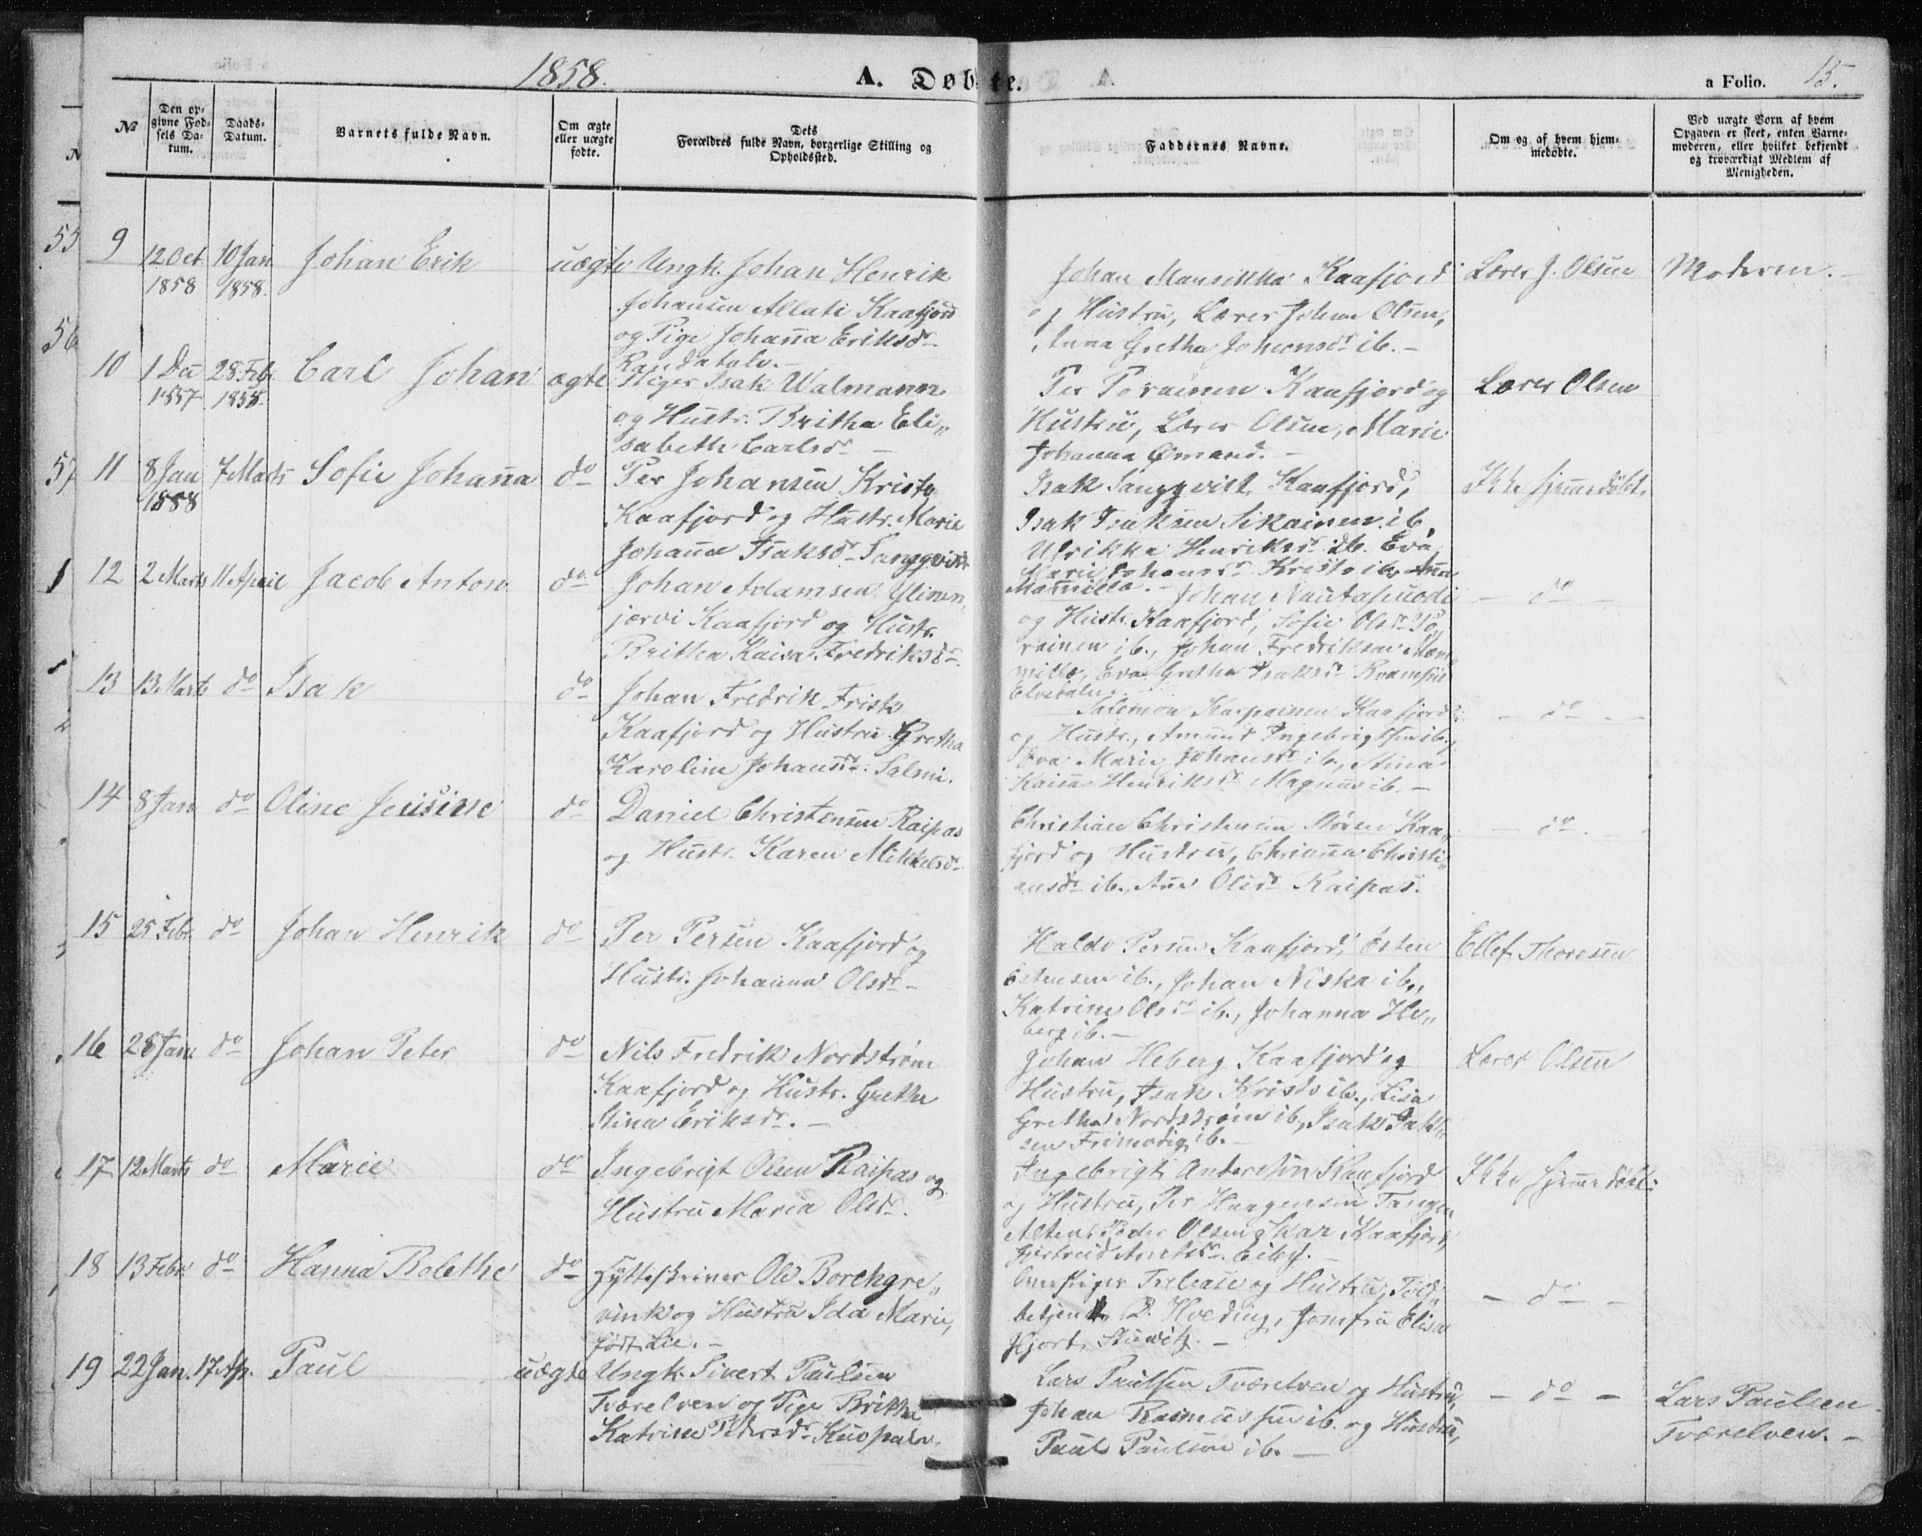 1858.
A. Døbte.
a Folio. 15.
№
Den op-
givne Fød-
sels Da-
tum.
Daabs-
Datum.
Barnets fulde Navn.
Om ægte
eller uægte
fødte.
Dets
Forældres fulde Navn, borgerlige Stilling og
Opholdssted.
Faddernes Navne.
Om og af hvem hjem-
medøbte.
Ved uægte Børn af hvem
Opgaven er skeet, enten Barne-
moderen, eller hvilket bekjendt
og troværdigt Medlem af
Menigheden.
55
9 12 Oct 10 Jan Johan Erik uægte Ungk. Johan Henrik
1858 1858.
Johansen Allati Kaafjord
og Pige Johanna Eriksdr
Johan Mansikka Kaafjord
og Hustru, Lærer Johan Olsen,
Anna Gretha Johansdr ib.-
Lærer J. Olsen
Moderen.
56
10 1 Dec 28 Feb. Carl Johan ægte Stiger Isak Walmann
1857 1858.
og Hustr. Britha Eli"
sabeth Carlsdr -
Per Porainen Kaafjord og
Hustru, Lærer Olsen, Marie
Johanna
Lærer Olsen
57
11 8 Jan 7 Marts Sofie Johanna do Per Johansen Kristo
1858
Kaafjord og Hustr. Marie
Johanna Isaksdr Tangqvist
Isak Tangqvist Kaafjord,
Isak Isaksen Sikainen ib,
Ulrikke Henriksdr ib. Eva
Marie Johansdr Kristo ib,
Ikke hjemmedøbt.
12 2 Marts 11 April Jacob Anton do Johan Adamsen Ylinen"
jærvi Kaafjord og Hustr.
Britha Kaisa Fredriksdr
Johan
og Hustr. Kaafjord, Sofie Olsdr Po"
rainen ib., Johan Fredriksen
Eva Gretha Isaksdr
- do -
13 13 Marts do Isak do Johan Fredrik Frisk
Kaafjord og Hustru Gretha
Karoline Johansdr Salmi.
Salomon Kaafjord
og Hustr., Amund Ingebrigtsen ib.,
Eva Marie Johansdr ib., Stina
Kaisa Henriksdr Magnus ib. -
- do -
14 8 Jan do Oline Jensine do Daniel Christensen Raipas
og Hustr. Karen Mikkelsdr
Christian Christensen Støren Kaa"
fjord og Hustru, Christi"
ansdr ib. Ane Olsdr Raipas.
- do -
15 25 Febr. do Johan Henrik do Per Persen Kaafjord og
Hustr. Johanna Olsdr -
Haldo Persen Kaafjord, Østen
Østensen ib., Johan Niska ib.,
Katrine Olsdr ib., Johanna He"
berg ib. -
Ellef Thoresen
16 28 Jan do Johan Peter do Nils Fredrik Nordstrøm
Kaafjord og Hustr. Grethe
Stina Eriksdr. -
Johan Heberg Kaafjord og
Hustru, Isak Kristo ib., Lisa
Gretha Nordstrøm ib, Isak Isak"
sen Frimodig ib. -
Lærer Olsen
17 12 Marts do Marie do Ingebrigt Olsen Raipas og
Hustru Maria Olsdr.
Ingebrigt Anderssøn Kaafjord
og Hustru, Per Haagensen Tangen
Alten, Peder Olsen Skar Kaafjord,
Eiby. -
Ikke hjemmedøbt.
18 13 Febr. do Hanna Bolethe do Hytteskriver Ole Borchgre"
vink og Hustru Ida Marie,
født Lie. -
Overstiger Trelease og Hustru, Told"
betjent D. Hveding, Jomfru Elisa
Hjort, Stuwitz. -
- do -
19 22 Jan. 17 Ap. Paul uægte Ungk. Sivert Paulsen
Tværelven og Pige Britha
Katrine Pedersdr
Lars Paulsen Tværelven og Hustru,
Johan Rasmussen ib. og Hustru,
Paul Paulsen ib. -
- do -
Lars Paulsen
Tværelven. -